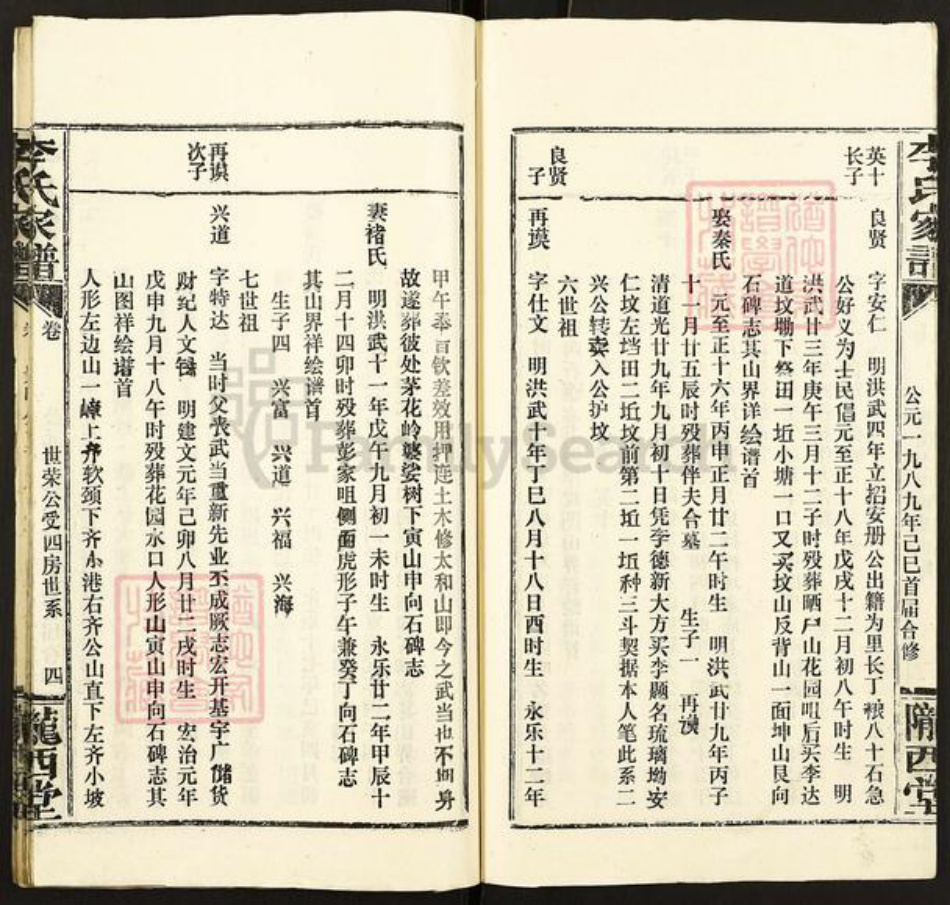 李氏家谱
公元一九八九年己巳首届合修
陇西堂
英十
长子
良贤　字安仁　明洪武四年立招安册公出籍为里长丁粮八十石急
公好义为士民倡元至正十八年戊戌十二月初八午时生　明
洪武廿三年庚午三月十二子时殁葬晒尸山花园咀后买李达
道坟塝下祭田一坵小塘一口又买坟山反背山一面坤山艮向
石碑志其山界详绘谱首
娶秦氏　元至正十六年丙申正月廿二午时生　明洪武廿九年丙子
十一月廿五辰时殁葬伴夫合墓　生子一　再谟
清道光廿九年九月初十日凭李德新大方买李顾名琉璃坳安
仁坟左垱田二坵坟前第二坵一坵种三斗契据本人笔此系二
兴公转卖入公护坟
六世祖
良贤
子
再谟　字仕文　明洪武十年丁巳八月十八日酉时生　永乐十二年
甲午奉旨钦差效用押连土木修太和山即今之武当也不期身
故遂葬彼处茅花岭婆娑树下寅山申向石碑志
妻褚氏　明洪武十一年戊午九月初一未时生　永乐廿二年甲辰十
二月十四卯时殁葬彭家咀侧面虎形子午兼癸丁向石碑志
其山界祥绘谱首
生子四　兴富　兴道　兴福　兴海
七世祖
再谟
次子
兴道　字特达　当时父丧武当重新先业丕成厥志宏开基宇广储货
财纪人文　明建文元年己卯八月廿二戌时生　宏治元年
戊申九月十八午时殁葬花园水口人形山寅山申向石碑志其
山图祥绘谱首
人形左边山一嶂上齐软颈下齐小港右齐公山直下左齐小坡
李氏家谱
卷
世荣公受四房世系
四
陇西堂
FamilySearch